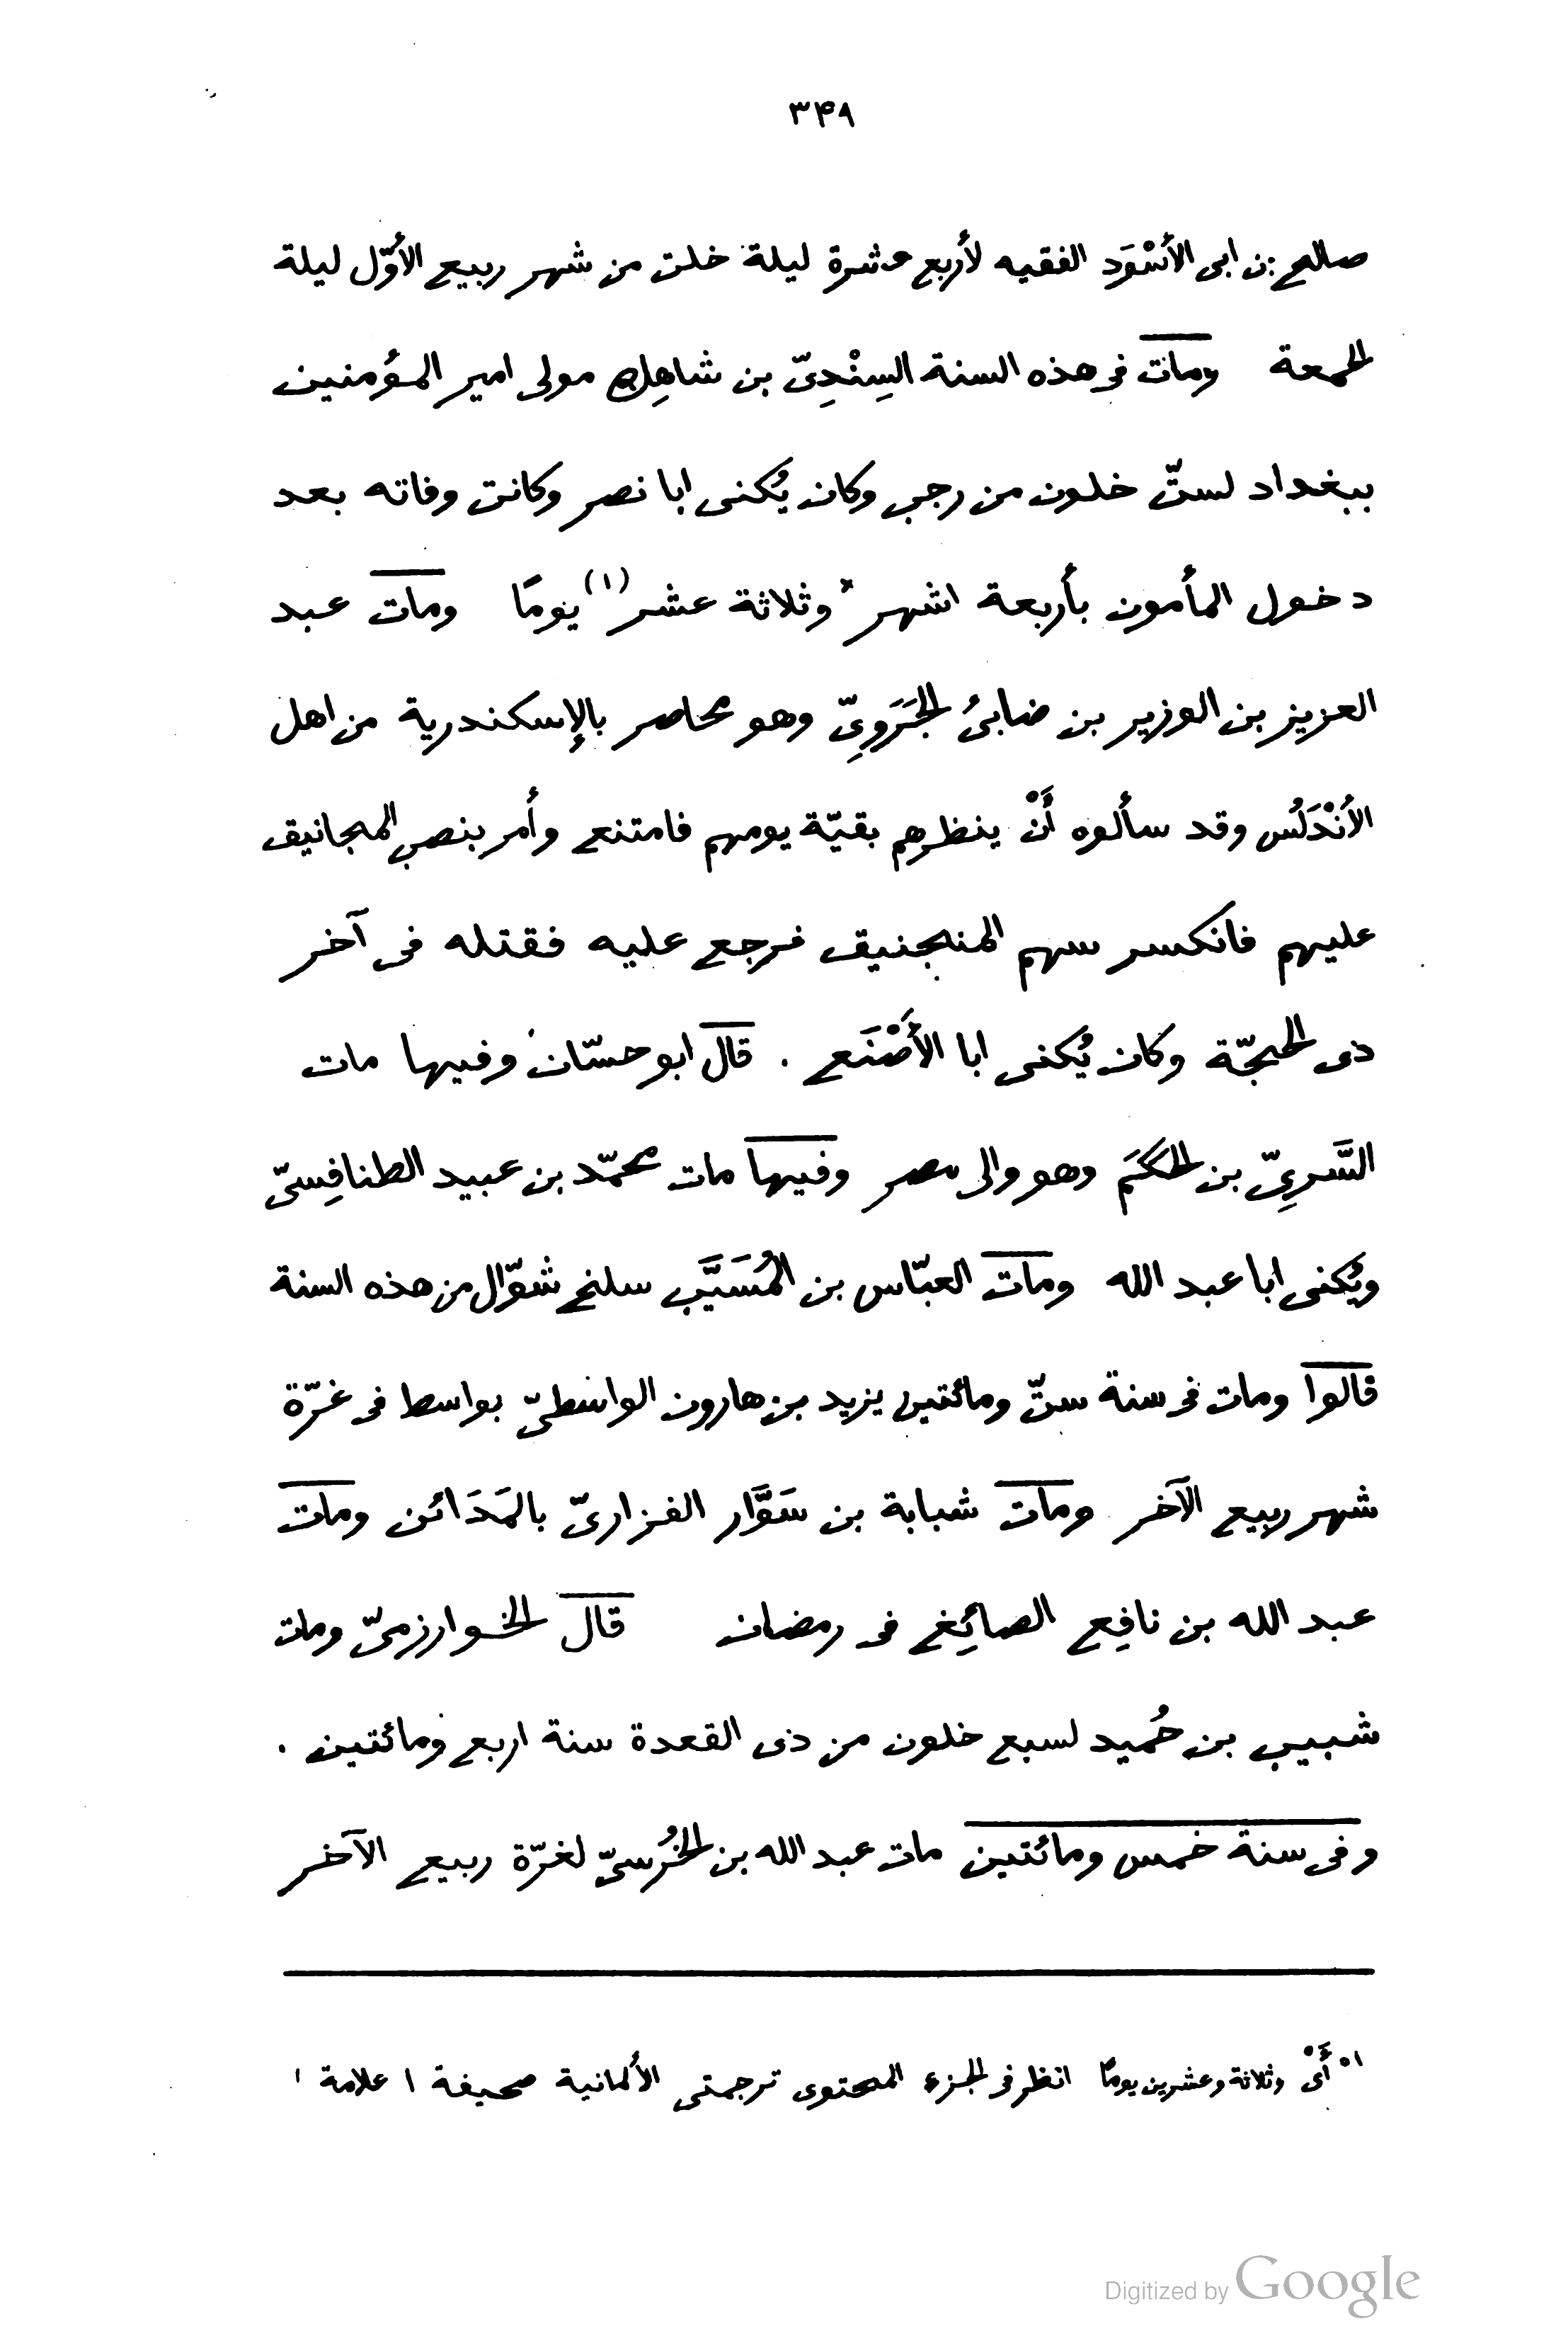 ٣٤٨
صالح بن ابى الأَسْوَد الفقيه لأربع عشرة ليلة خلت من شهر ربيع الأوّل ليلة
الجمعة ومات فى هذه السنة السِنْدِىّ بن شاهِك مولى امير المؤمنين
ببغداد لستّ خلون من رجب وكان يُكنى ابا نصر وكانت وفاته بعد
دخول المأمون بأربعة اشهر * وثلاثة عشر (١) يومًا ومات عبد
العزيز بن الوزير بن ضابئ الجَرَوِىّ وهو محاصر بالإسكندرية من اهل
الأَنْدَلُس وقد سألوه أَنْ ينظرهم بقيّة يومهم فامتنع وأمر بنصب المجانيق
عليهم فانكسر سهم المنجنيق فرجع عليه فقتله فى آخر
ذى الحجّة وكان يُكنى ابا الأَصْنَع . قال ابو حسّان وفيها مات
السَّرِىّ بن الحَكَم وهو والى مصر وفيها مات محمّد بن عبيد الطنافِسىّ
ويُكنى ابا عبد الله ومات العبّاس بن المُسَيَّب سلخ شوّال من هذه السنة
قالوا ومات فى سنة ستّ ومائتين يزيد بن هارون الواسطىّ بواسط فى غرّة
شهر ربيع الآخر ومات شبابة بن سَوَّار الفزارىّ بالمَدَائن ومات
عبد الله بن نافِع الصائِغ فى رمضان قال الخوارزمىّ ومات
شبيب بن حُميد لسبع خلون من ذى القعدة سنة اربع ومائتين .
وفى سنة خمس ومائتين مات عبد الله بن الخُرسىّ لغرّة ربيع الآخر
١° أَىْ وثلاثة وعشرين يومًا انظر فى الجزء المحتوى ترجمتى الألمانية صحيفة ١ علامة ١
Digitized by Google